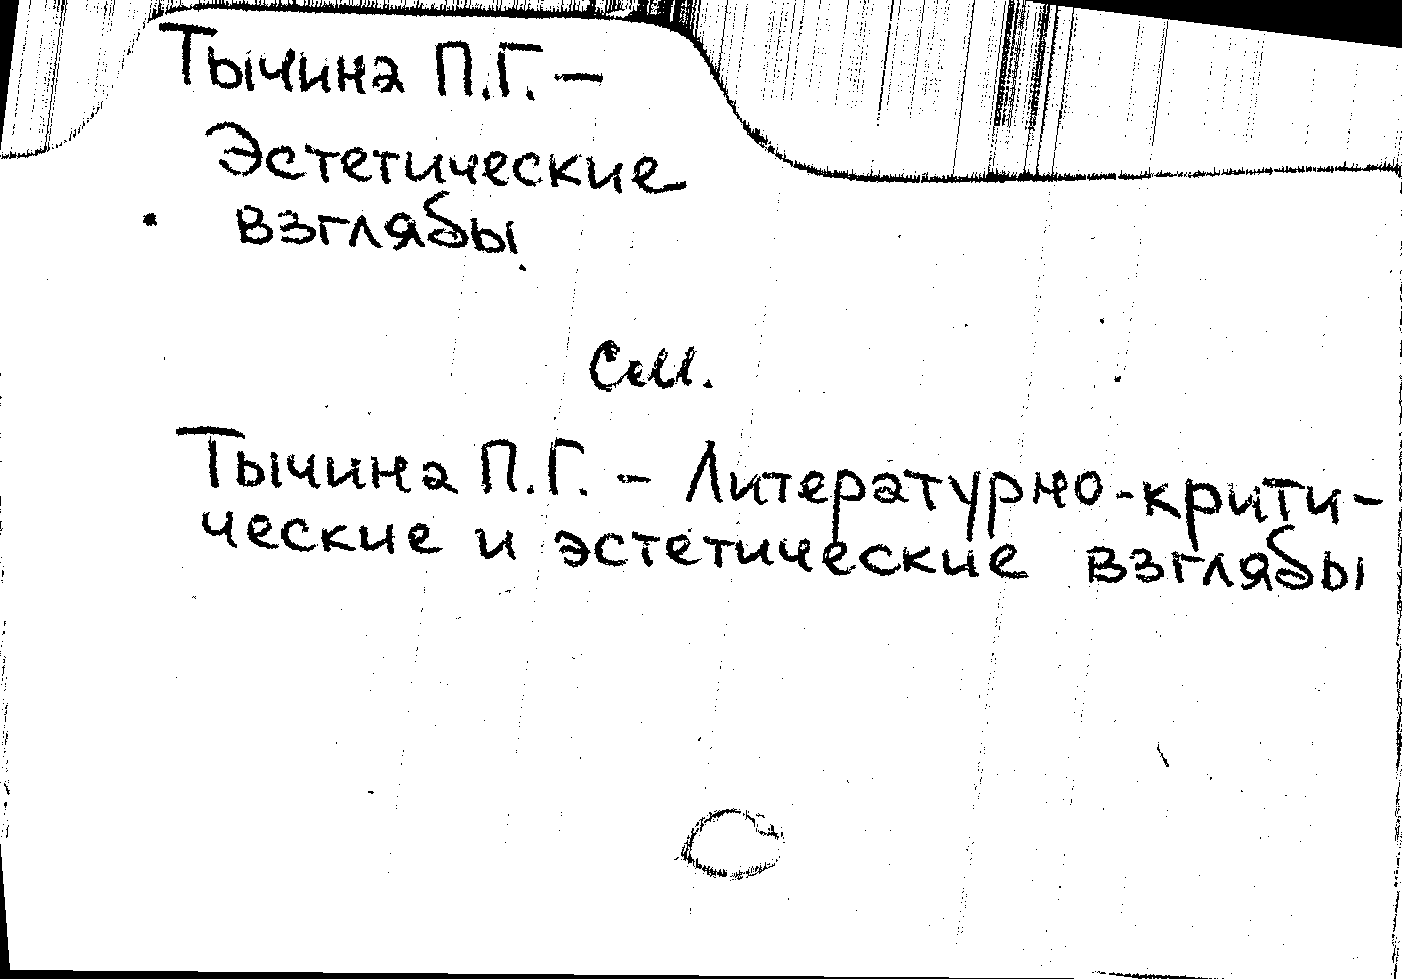 Тычина П.Г. –
Эстетические
взгляды
См.
Тычина П.Г. – Литературно-крити-
ческие и эстетические взгляды